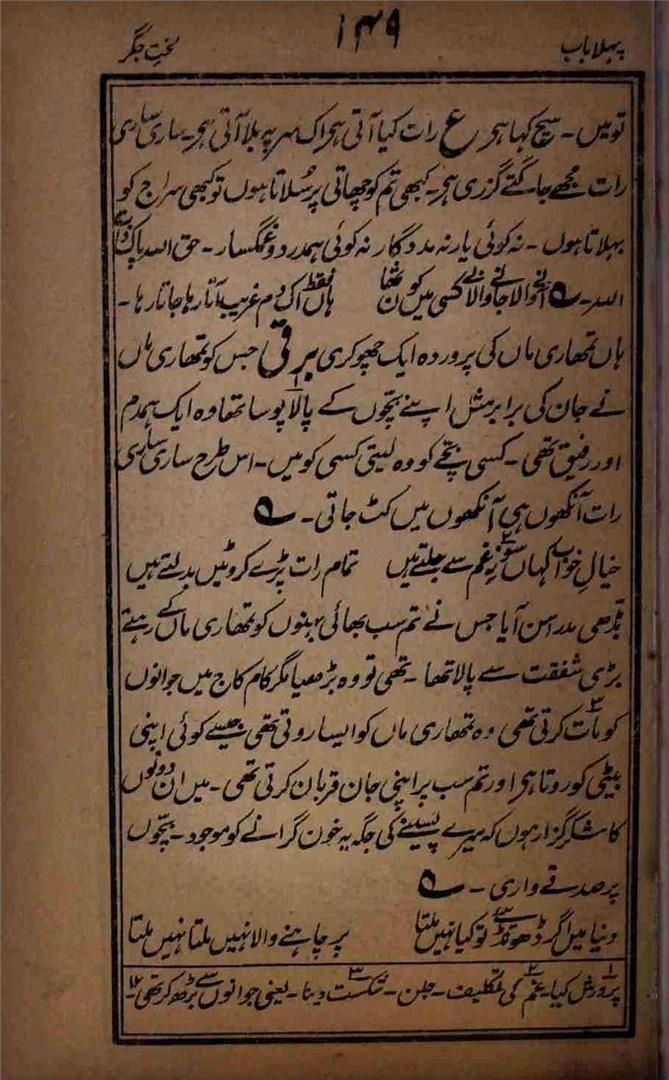 پہلا باب
۱۴۹
لختِ جگر
تو میں ۔ سچ کہا ہی ع رات کیا آتی ہی اک سر پہ بلا آتی ہی ۔ ساری ساری
رات مجھے جاگتے گزری ہی ۔ کبھی تم کو چھاتی پر سُلاتا ہوں تو کبھی سراج کو
بہلاتا ہوں ۔ نہ کوئی یار نہ مددگار نہ کوئی ہمدرد و غمگسار ۔ حق اللہ پاک ذات
اللہ ۔ ؎ آنے والا جانے والا بے کسی میں کون تھا ہاں فقط اک دم غریب آتا رہا جاتا رہا ۔
ہاں تمھاری ماں کی پروردہ ایک چھوکری برقی جس کو تمھاری ماں
نے جان کی برابر مثل اپنے بچوں کے پالا پوسا تھا وہ ایک ہمدم
اور رفیق تھی ۔ کسی بچّے کو وہ لیتی کسی کو میں ۔ اس طرح ساری ساری
رات آنکھوں ہی آنکھوں میں کٹ جاتی ۔ ؎
خیالِ خواب کہاں سوزِ غم سے جلتے ہیں تمام رات پڑے کروٹیں بدلتے ہیں
بڈّھی مدراسن آیا جس نے تم سب بھائی بہنوں کو تمھاری ماں کے رہتے
بڑی شفقت سے پالا تھا ۔ تھی تو وہ بڑھیا مگر کام کاج میں جوانوں
کو مات کرتی تھی وہ تمھاری ماں کو ایسا روتی تھی جیسے کوئی اپنی
بیٹی کو روتا ہی اور تم سب پر اپنی جان قربان کرتی تھی ۔ میں ان دونوں
کا شکر گزار ہوں کہ میرے پسینے کی جگہ یہ خون گرانے کو موجود ۔ بچّوں
پر صدقے واری ۔ ؎
دنیا میں اگر ڈھونڈے تو کیا نہیں ملتا پر چاہنے والا نہیں ملتا نہیں ملتا
۱ پرورش کیا ۔ ۲ غم کی تکلیف ۔ جلن ۔ ۳ شکست دینا ۔ یعنی جوانوں سے بڑھ کر تھی ۱۲